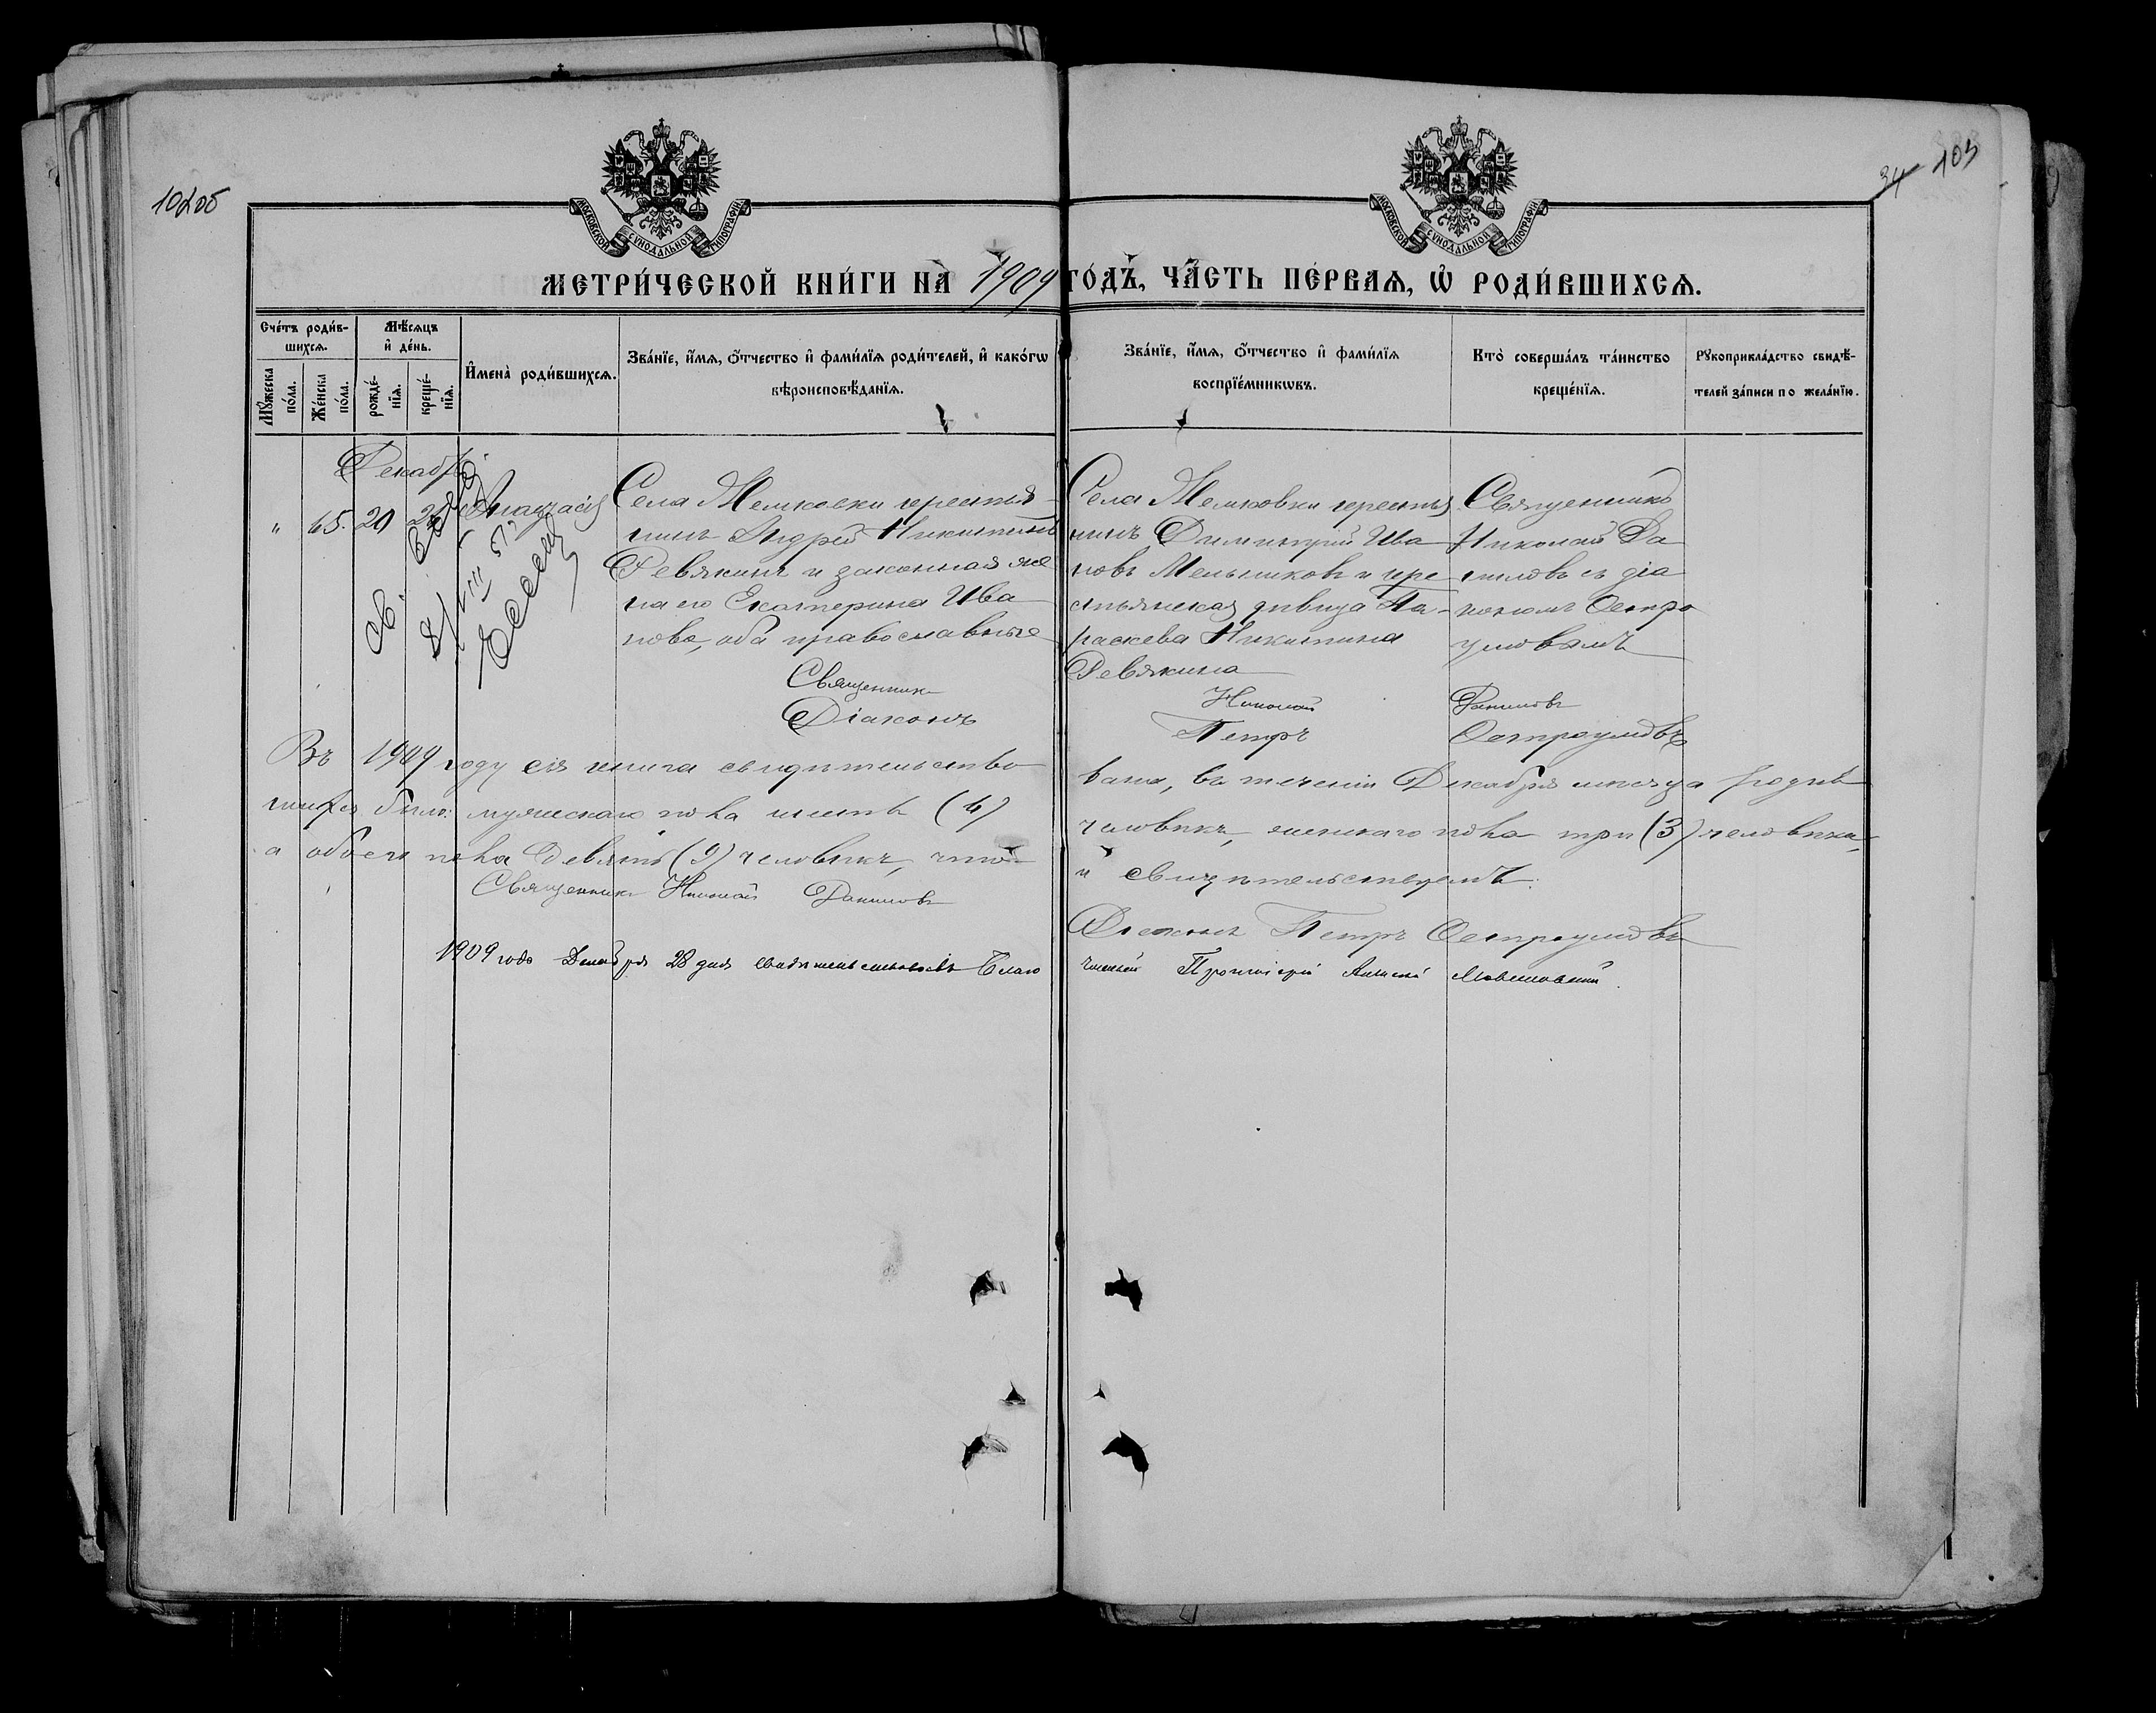 102об
34 103
МОСКОВСКОЙ СѴНОДАЛЬНОЙ ТИПОГРАФІИ
МОСКОВСКОЙ СѴНОДАЛЬНОЙ ТИПОГРАФІИ
МЕТРИ́ЧЕСКОЙ КНИ́ГИ НА 1909 ГО́ДЪ, ЧА́СТЬ ПЕ́РВАѦ, Ѡ РОДИ́ВШИХСѦ.
Сче́тъ роди́в-
шихсѧ.
Мѣ́сѧцъ
и҆ де́нь.
Мꙋ́жеска
по́ла.
Же́нска
по́ла.
рожде́-
нїѧ.
креще́-
нїѧ.
И҆мена̀ роди́вшихсѧ.
Зва́нїе, и҆́мѧ, ѻ҆́тчество и҆ фами́лїѧ роди́телей, и҆ како́гѡ
вѣроисповѣ́данїѧ.
Зва́нїе, и҆́мѧ, ѻ҆́тчество и҆ фами́лїѧ
воспрїе́мникѡвъ.
Кто̀ соверша́лъ та́инство
креще́нїѧ.
Рꙋкоприкла́дство свидѣ́-
телей за́писи по жела́нїю.
Декабрь
" 65. 20 21 Анастасія
Села Мемковки крестья-
нинъ Андрей Никитинъ
Ревякинъ и законная же
на его Екатерина Ива
нова, оба православные
Села Мемковки крестья
нинъ Димитрий Ива
новъ Мельниковъ и кре
стьянская дѣвица Па-
раскева Никитина
Ревякина
Священникъ
Николай Да
ниловъ съ діа
кономъ Остро
умовымъ
Священникъ Николай Даниловъ
Діаконъ Петръ Остроумовъ
Въ 1909 году сія книга свидѣтельство
вана, въ теченіи Декабря мѣсяца родив
шихся было: мужескаго пола шесть (6)
человѣкъ, женскаго пола три (3) человѣка,
а обоего пола девять (9) человѣкъ, что
и свидѣтельствуемъ:
Священникъ Николай Даниловъ
Діаконъ Петръ Остроумовъ
1909 года Декабря 28 дня свидѣтельствовалъ Благо
чинный Протоіерей Алексій